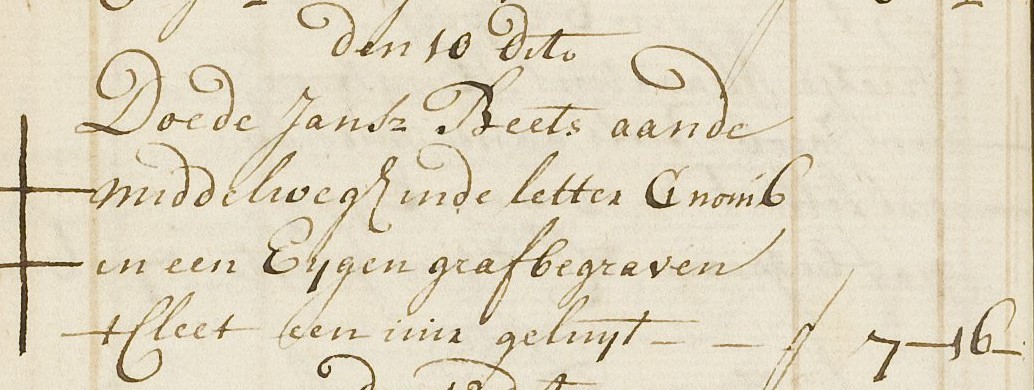 den 10 dito
Doede Jansz Beets aande
middelwegh inde letter G nom 6
in een Eygen graf begraven
tCleet een uur geluyt - - ƒ 7-16-